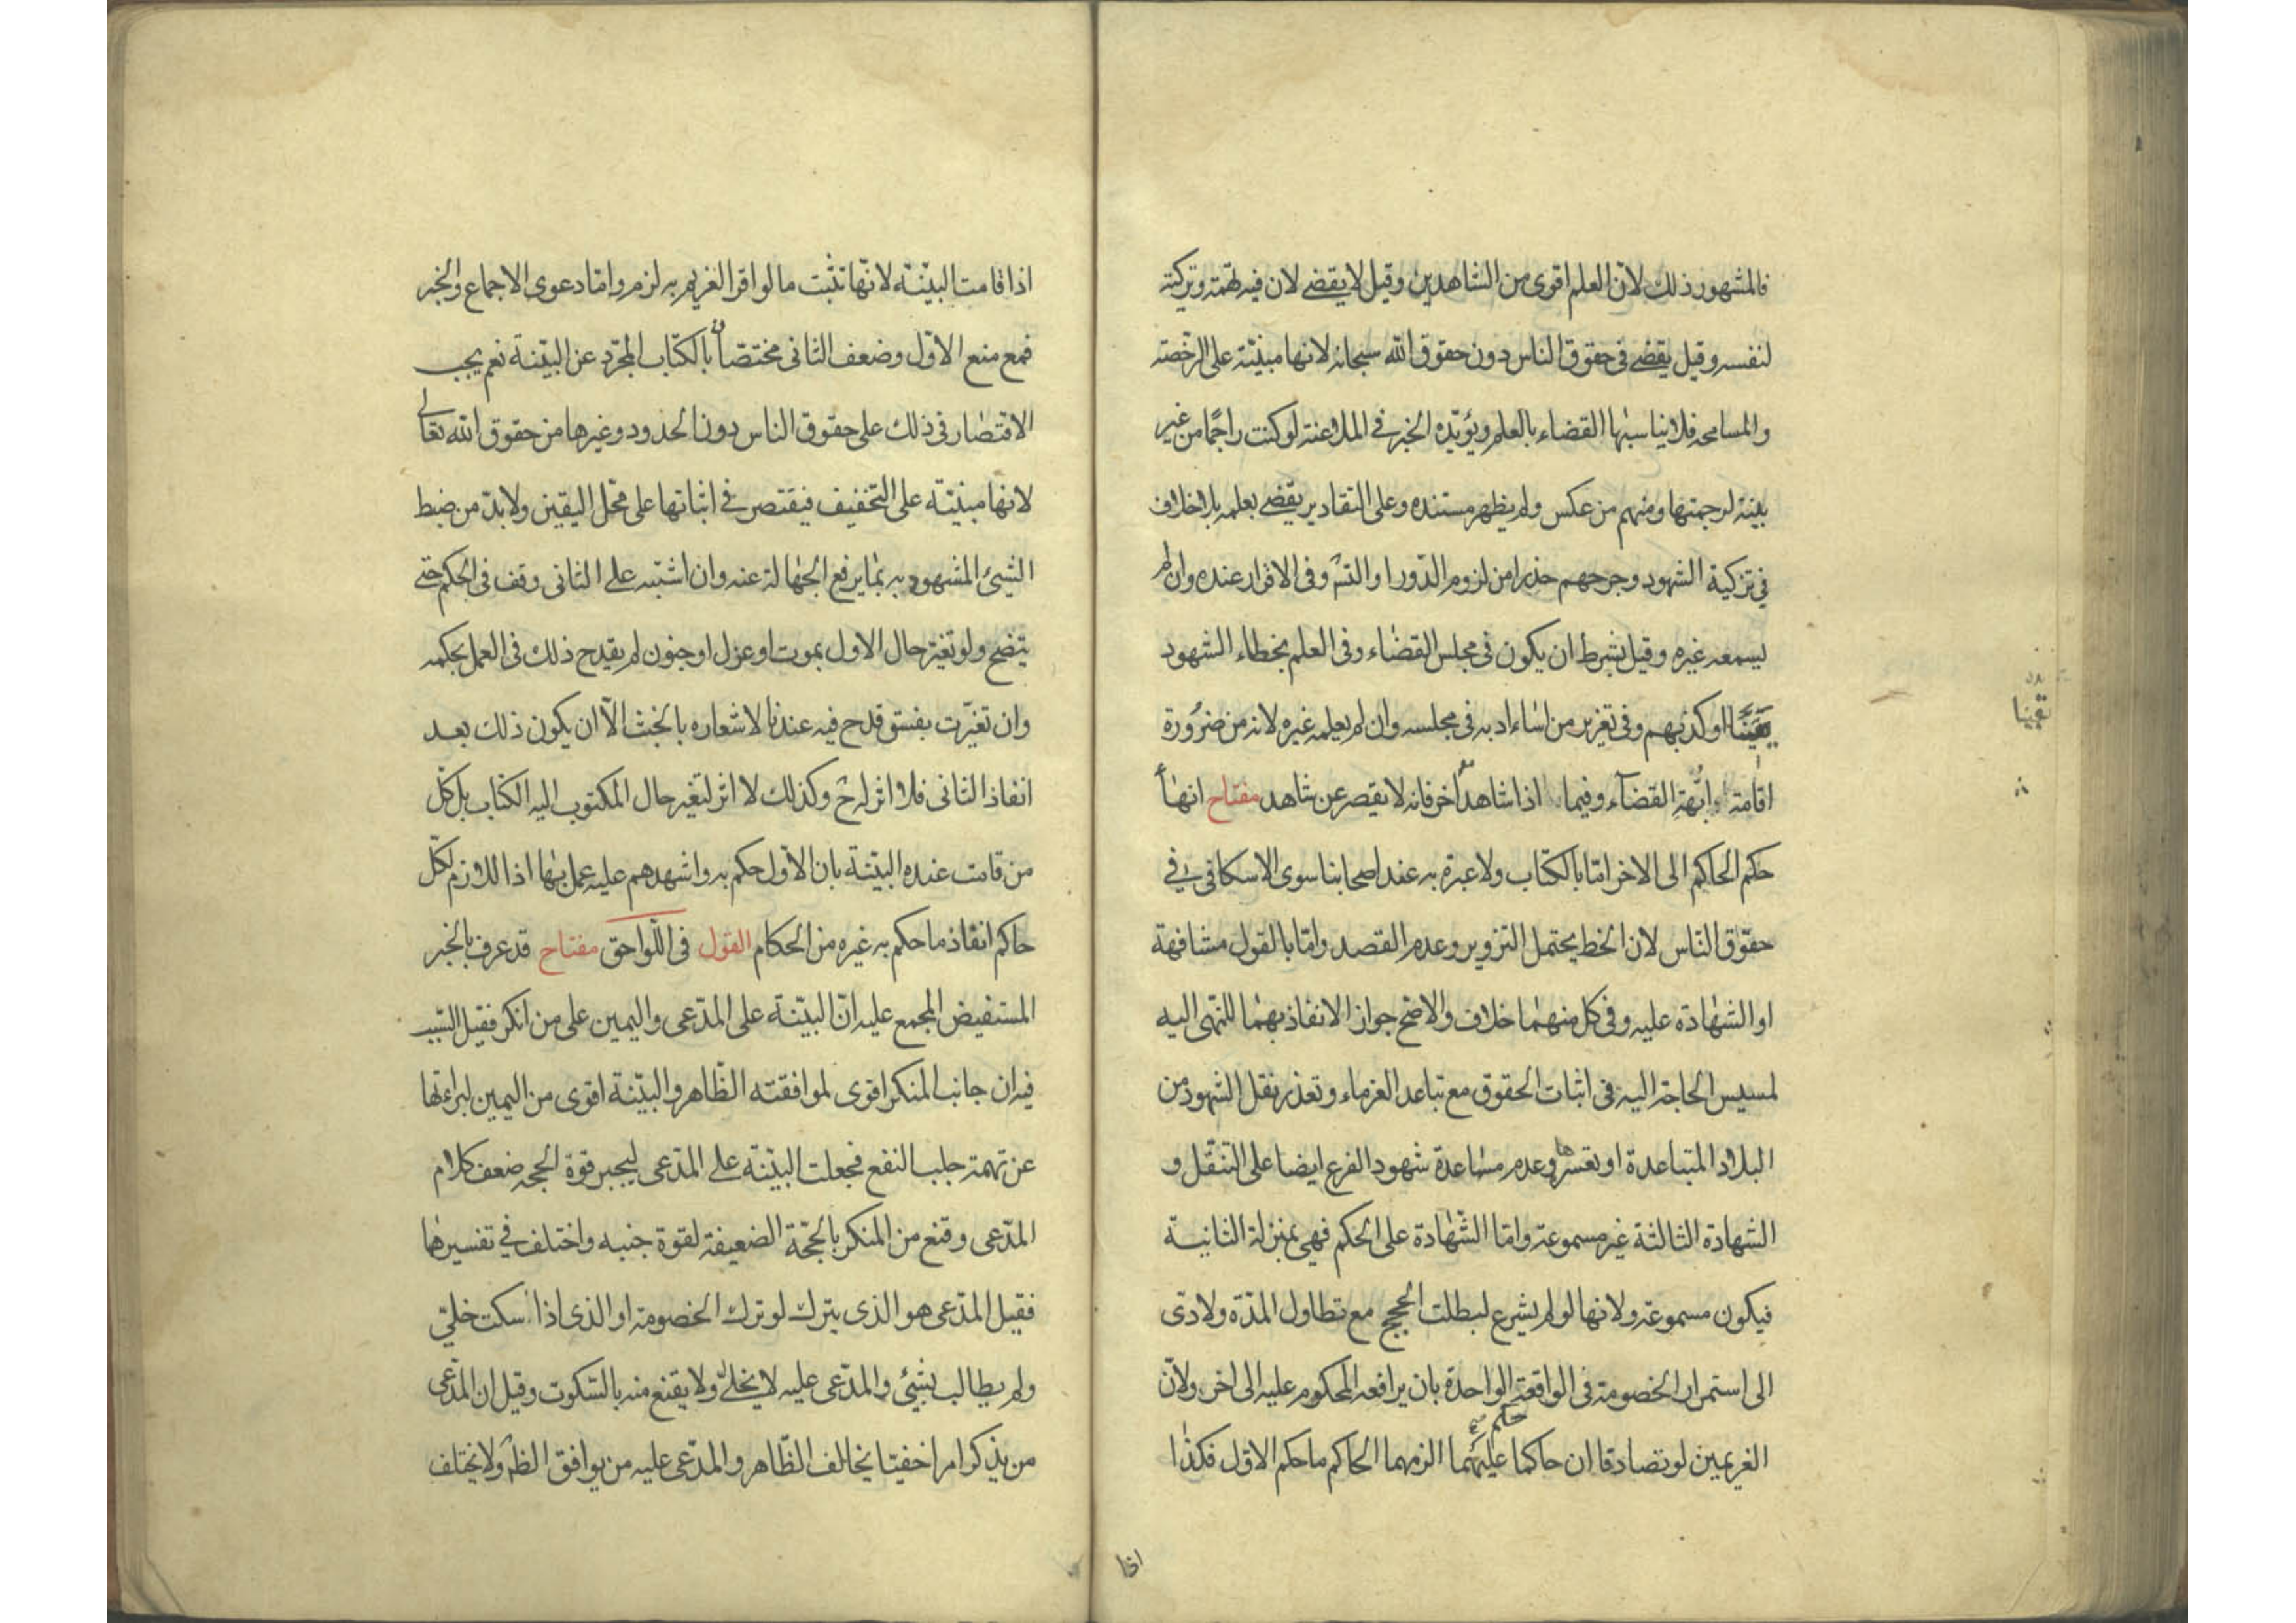 فالمشهور ذلك لانّ العلم اقوى من الشاهدين وقيل لا يقضى لان فيه تهمة وتزكية
لنفسه وقيل يقضى فى حقوق الناس دون حقوق الله سبحانه لانها مبنيّة على الرخصة
والمسامحة فلا يناسبها القضاء بالعلم ويؤيّده الخبر فى الملاعنة لو كنت راجمًا من غير
بينة لرجمتها ومنهم من عكس ولم يظهر مستنده وعلى التقادير يقضى بعلمه بلا خلاف
فى تزكية الشهود وجرحهم حذرا من لزوم الدّور او التسّ وفى الاقرار عنده وان لم
يسمعه غيره وقيل يشرط ان يكون فى مجلس القضاء وفى العلم بخطاء الشهود
يقينًا او كذبهم وفى تعزير من اساء ادبه فى مجلسه وان لم يعلمه غيره لانه من ضرورة
اقامة ابّهة القضاء وفيما اذا شاهد اخر فانه لا يقصر عن شاهد مفتاح انهاء
حكم الحاكم الى الاخر امّا بالكتاب ولا عبرة به عند اصحابنا سوى الاسكافى فى
حقوق الناس لان الخط يحتمل التزوير وعدم القصد وامّا بالقول مشافهة
او الشهادة عليه وفى كل منهما خلاف والاصح جواز الانفاذ بهما للمنهى اليه
لمسيس الحاجة اليه فى اثبات الحقوق مع تباعد الغرماء وتعذر نقل الشهود من
البلاد المتباعدة او تعسّرها وعدم مساعدة شهود الفرع ايضا على التنقّل و
الشهادة الثالثة غير مسموعة وامّا الشهادة على الحكم فهى بمنزلة الثانية
فيكون مسموعة ولانها لو لم يشرع لبطلت الحجج مع تطاول المدّة ولادّى
الى استمرار الخصومة فى الواقعة الواحدة بان يرافعه المحكوم عليه الى اخر ولانّ
الغريمين لو تصادقا ان حاكما حكم عليهما الزمهما الحاكم ما حكم الاول فكذا
اذا
يقينا
اذا قامت البيّنة لانّها تثبت ما لو اقر الغريم به لزم وامّا دعوى الاجماع والخبر
فمع منع الاوّل وضعف الثانى مختصّان بالكتاب المجرّد عن البيّنة نعم يجب
الاقتصار فى ذلك على حقوق الناس دون الحدود وغيرها من حقوق الله تعالى
لانها مبنيّة على التخفيف فيقتصر فى اثباتها على محّل اليقين ولا بدّ من ضبط
الشىء المشهود به بما يرفع الجهالة عنه وان اشتبه على الثانى وقف فى الحكم حتى
يتضح ولو تغيّر حال الاول بموت او عزل او جنون لم يقدح ذلك فى العمل بحكمه
وان تغيّرت بفسق قدح فيه عندنا لاشعاره بالخبث الّا ان يكون ذلك بعد
انفاذ الثانى فلا اثر له ح وكذلك لا اثر لتغير حال المكتوب اليه الكتاب بل كلّ
من قامت عنده البيّنة بان الاوّل حكم به واشهدهم عليه عمل بها اذ اللازم لكلّ
حاكم انفاذ ما حكم به غيره من الحكام القول فى اللّواحق مفتاح قد عرف بالخبر
المستفيض المجمع عليه انّ البيّنة على المدّعى واليمين على من انكر فقيل السّبب
فيه ان جانب المنكر اقوى لموافقته الظّاهر والبيّنة اقوى من اليمين لبراءتها
عن تهمة جلب النفع فجعلت البيّنة على المدّعى ليجبر قوة الحجة ضعف كلام
المدّعى وقنع من المنكر بالحجّة الضعيفة لقوة جنبه واختلف فى تفسيرها
فقيل المدّعى هو الذى يترك لو ترك الخصومة او الذى اذا سكت خلّى
ولم يطالب بشىء والمدّعى عليه لا يخلّى ولا يقنع منه بالسّكوت وقيل ان المدّعى
من يذكر امرا خفيّا يخالف الظّاهر والمدّعى عليه من يوافق الظّم ولا يختلف